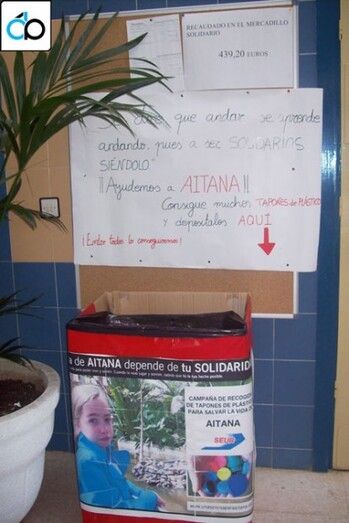 RECAUDADO EN EL MERCADILLO
SOLIDARIO
439,20 EUROS
que andar se aprende
andando, pues a ser SOLIDARIOS
SIÉNDOLO."
¡¡Ayudemos a AITANA!!
Consigue muchos TAPONES DE PLÁSTICO
y deposítalos AQUÍ
¡Entre todos lo conseguiremos!
a de AITANA depende de tu SOLIDARID
CAMPAÑA DE RECOGID
DE TAPONES DE PLÁSTIC
PARA SALVAR LA VIDA D
AITANA
SEUR